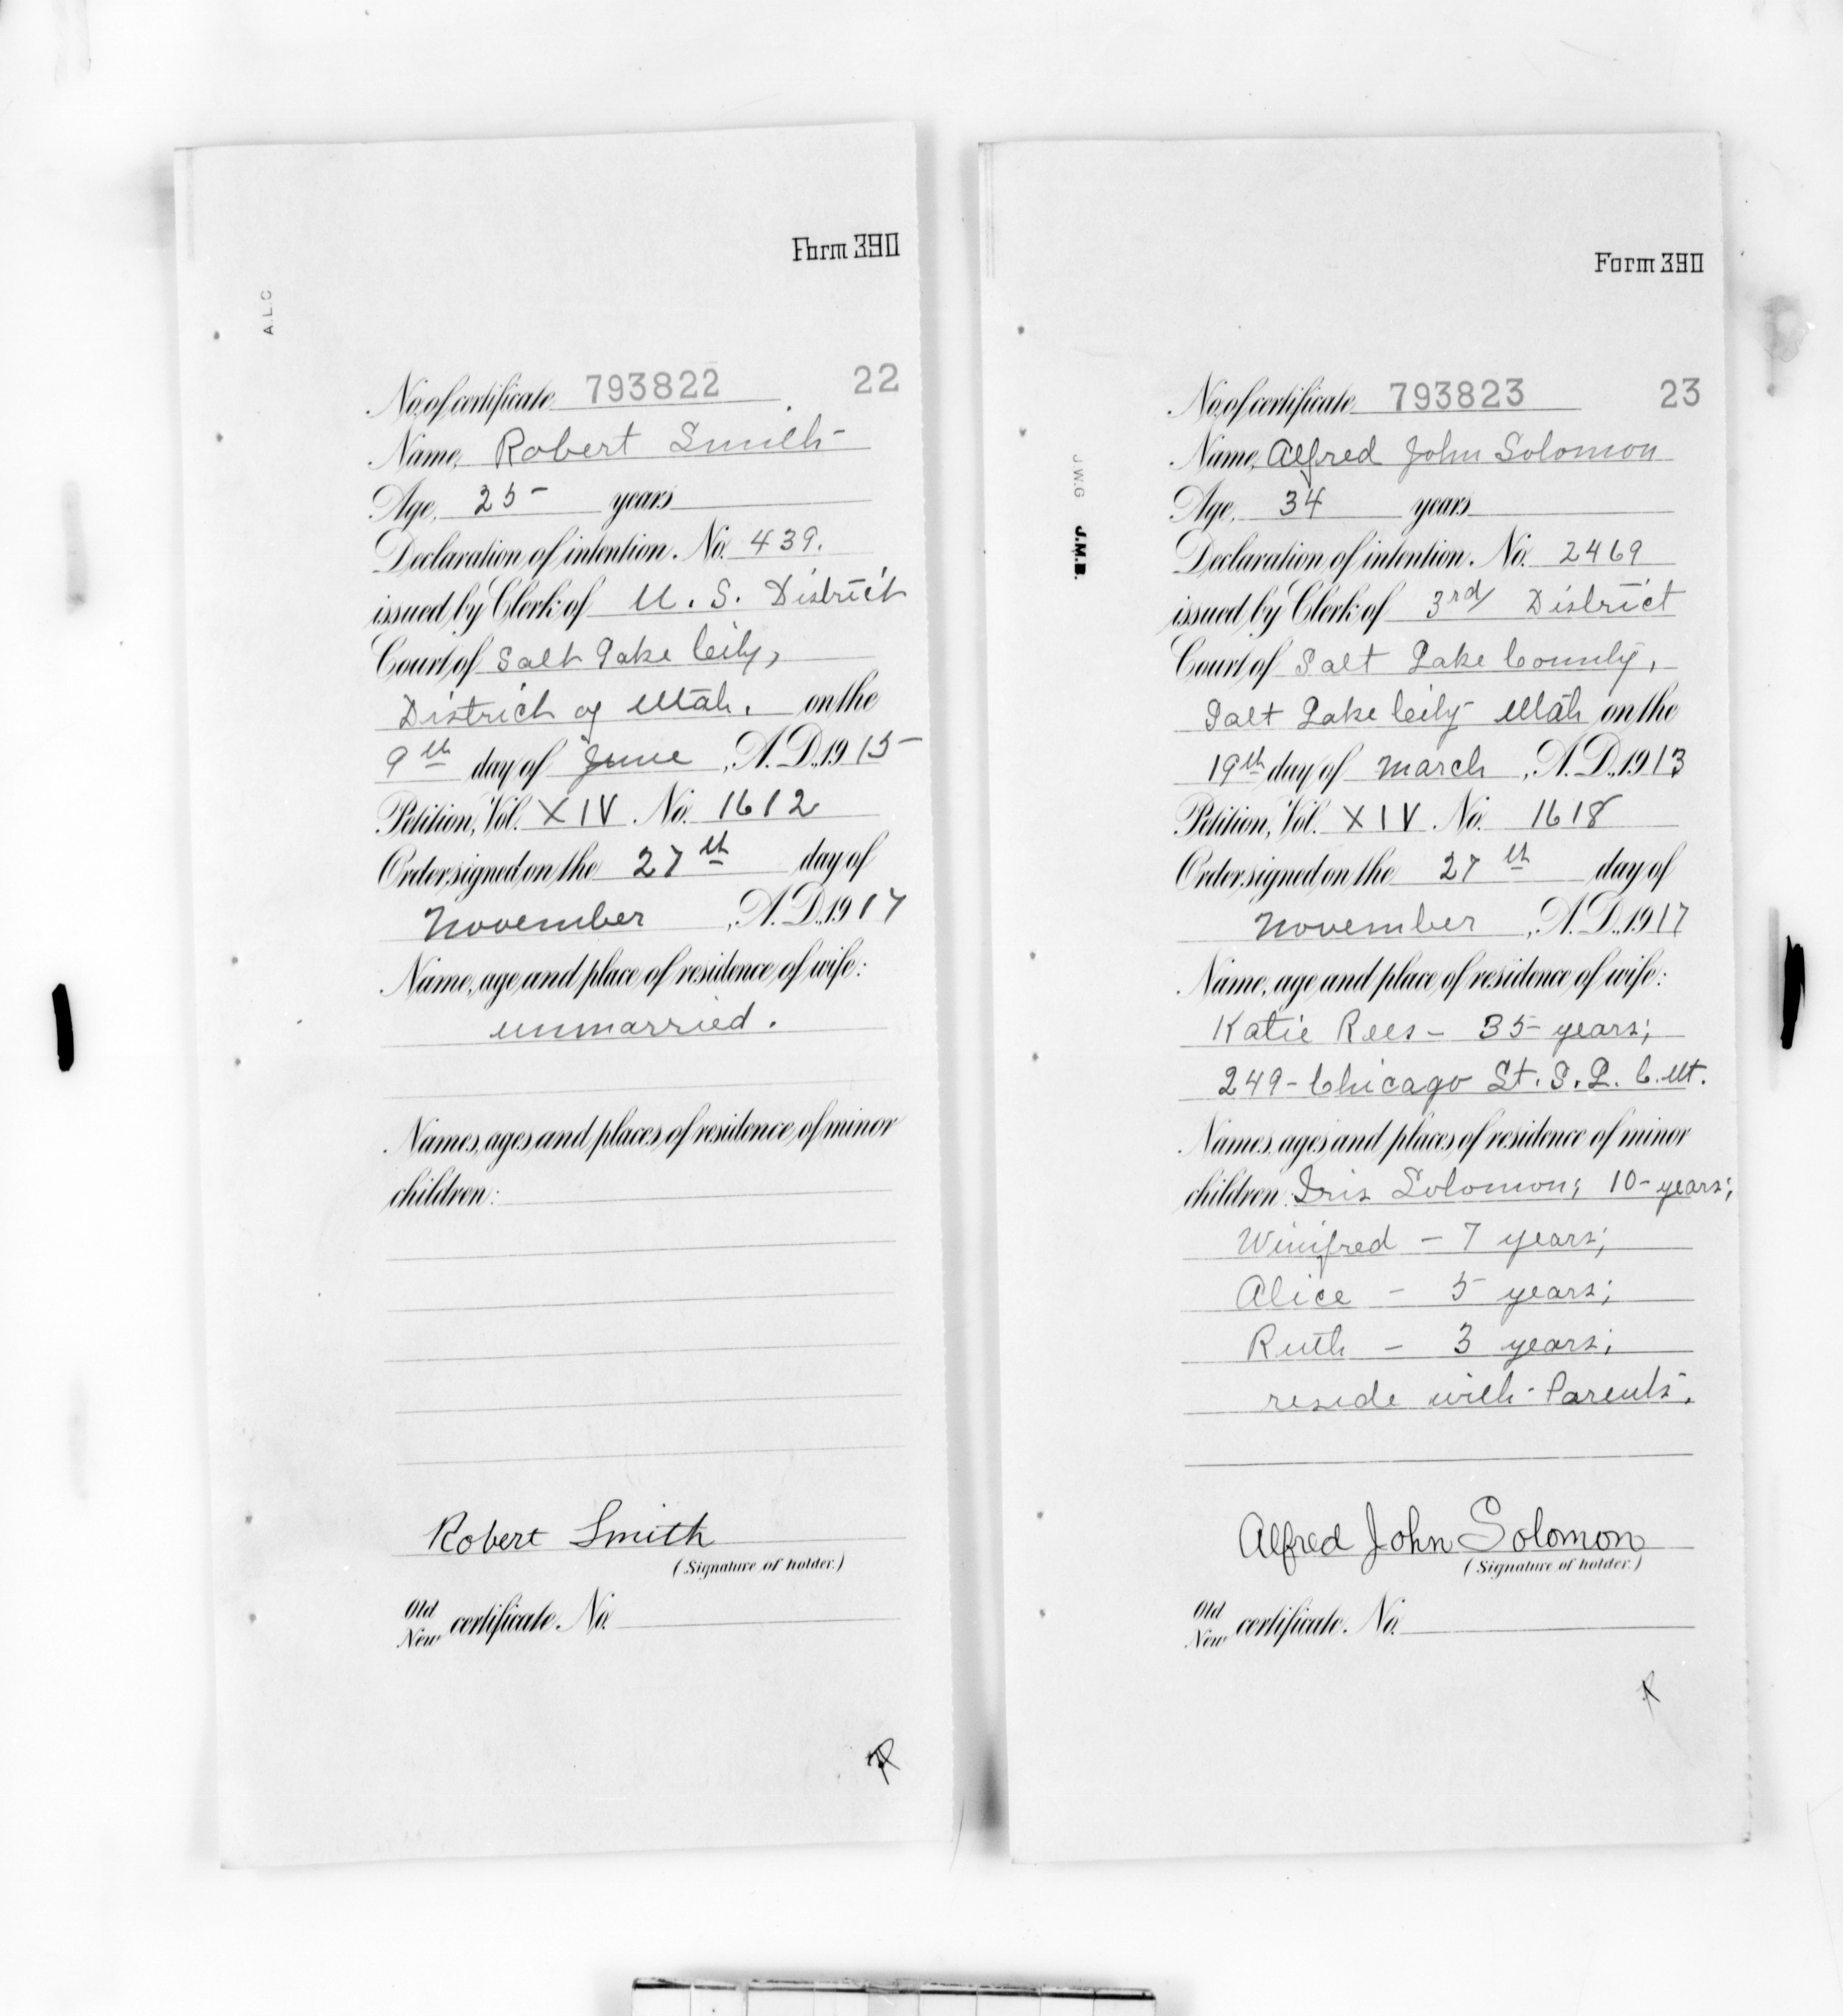 Form 390
A.L.C
No. of certificate 793822 22
Name, Robert Smith
Age, 25 years
Declaration of intention, No. 439.
issued by Clerk of U. S. District
Court of Salt Lake City,
District of Utah. on the
9th day of June, A. D., 1915
Petition, Vol. XIV No. 1612
Order signed on the 27th day of
November, A. D., 1917
Name, age and place of residence of wife:
unmarried.
Names, ages and places of residence of minor
children:
Robert Smith
(Signature of holder.)
Old
New certificate No.
Form 390
J.W.G J.M.B.
No. of certificate 793823 23
Name, Alfred John Solomon
Age, 34 years
Declaration of intention, No. 2469
issued by Clerk of 3rd District
Court of Salt Lake County,
Salt Lake City Utah on the
19th day of March, A. D., 1913
Petition, Vol. XIV No. 1618
Order signed on the 27th day of
November, A. D., 1917
Name, age and place of residence of wife:
Katie Rees - 35 years;
249 - Chicago St. S. L. C. Ut.
Names, ages and places of residence of minor
children: Iris Solomon; 10 - years;
Winifred - 7 years;
Alice - 5 years;
Ruth - 3 years;
reside with Parents.
Alfred John Solomon
(Signature of holder.)
Old
New certificate No.